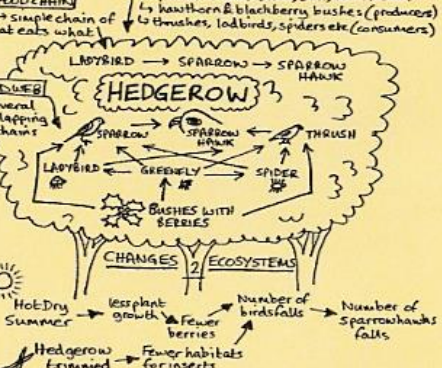 OOD CHAIN
↳ hawthorn & blackberry bushes (producers)
↳ simple chain of
↳ thrushes, ladbirds, spiders etc (consumers)
at eats what
LADYBIRD → SPARROW → SPARROW HAWK
HEDGEROW
D WEB
veral
lapping
hains
SPARROW
SPARROW HAWK
THRUSH
LADYBIRD
GREENFLY
SPIDER
BUSHES WITH BERRIES
CHANGES 2 ECOSYSTEMS
Hot Dry Summer → less plant growth → Fewer berries → Number of birds falls → Number of sparrowhawks falls
Hedgerow trimmed → Fewer habitats for insects